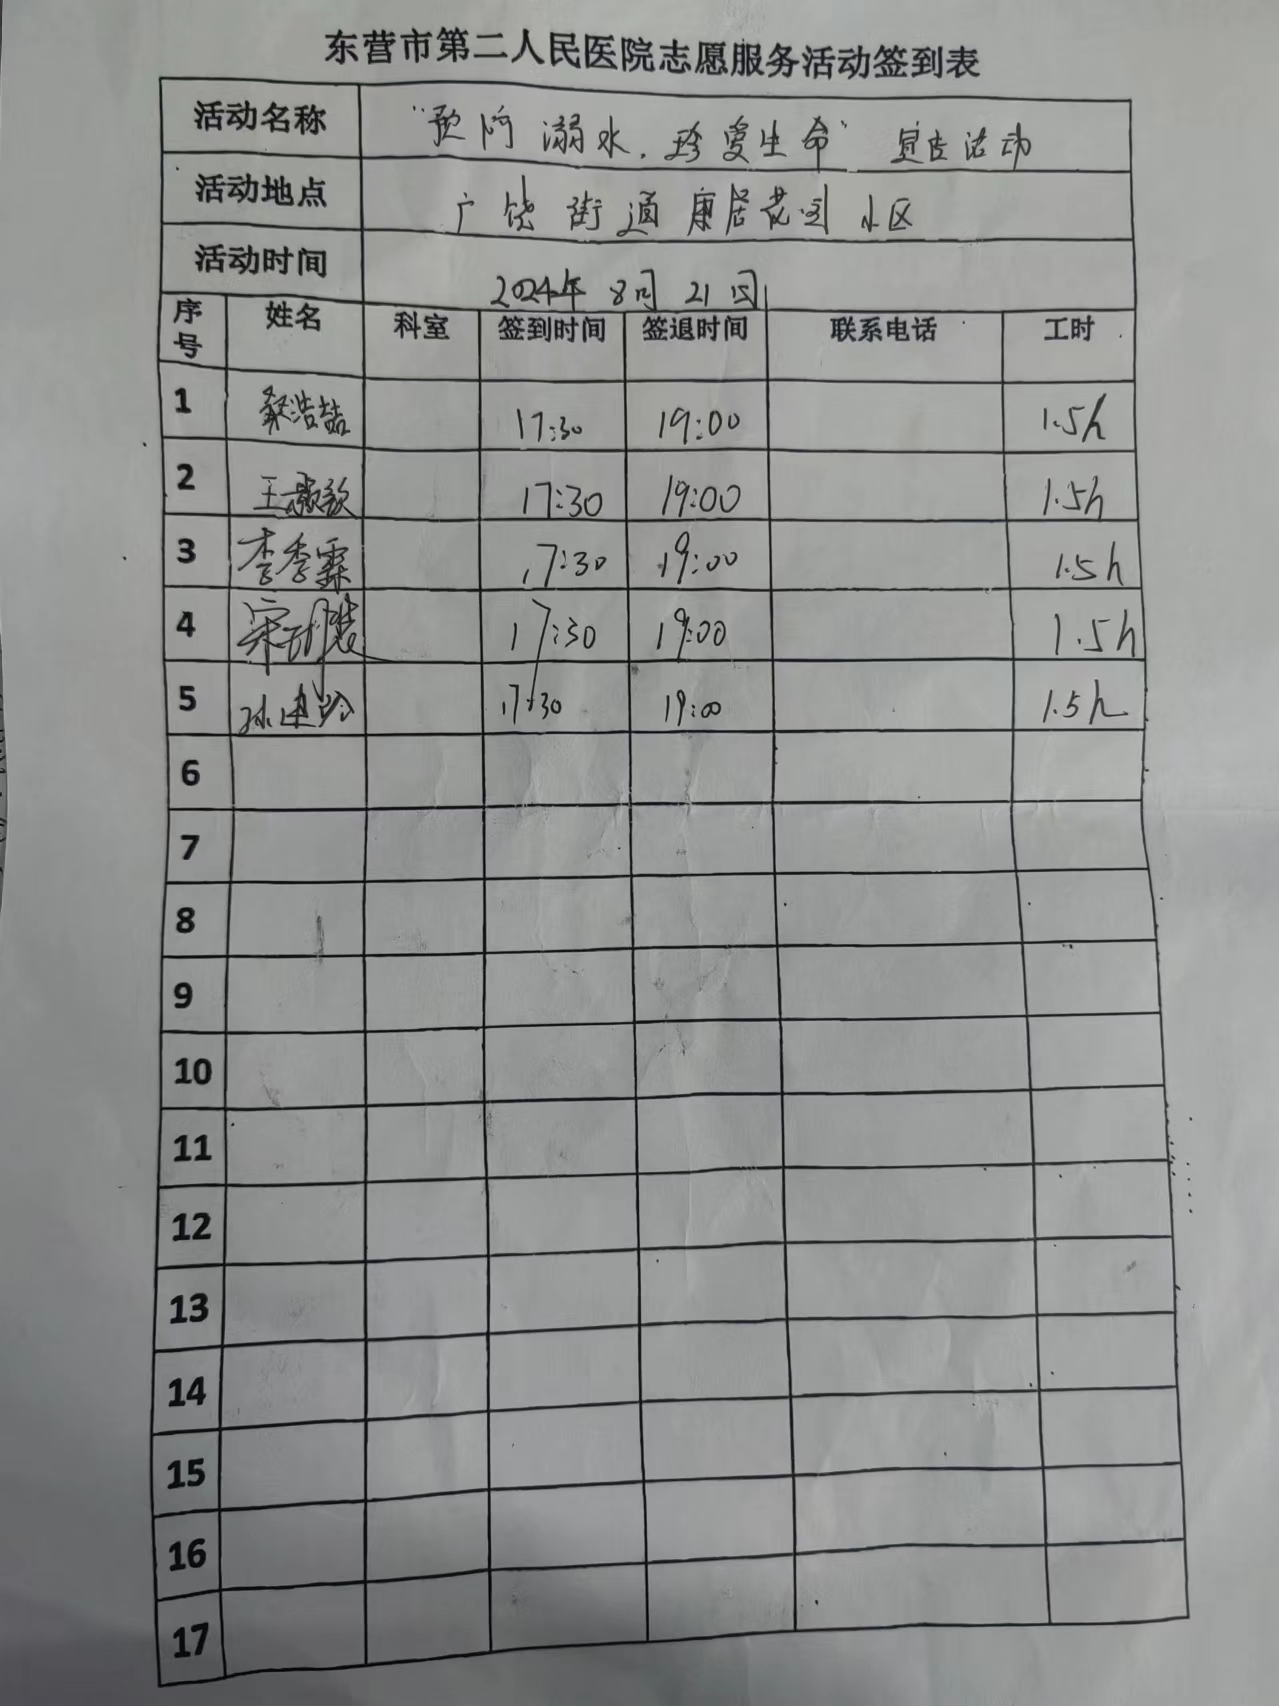 东营市第二人民医院志愿服务活动签到表
活动名称 “预防溺水,珍爱生命” 宣传活动
活动地点 广饶街道康居花园小区
活动时间 2024年 8月 21日
序号 姓名 科室 签到时间 签退时间 联系电话 工时
1 浩喆 17:30 19:00 1.5h
2 王 17:30 19:00 1.5h
3 李季霖 17:30 19:00 1.5h
4 宋 17:30 19:00 1.5h
5 孙建 17:30 19:00 1.5h
6
7
8
9
10
11
12
13
14
15
16
17